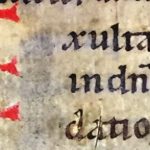 xulta
in dn̄
datio